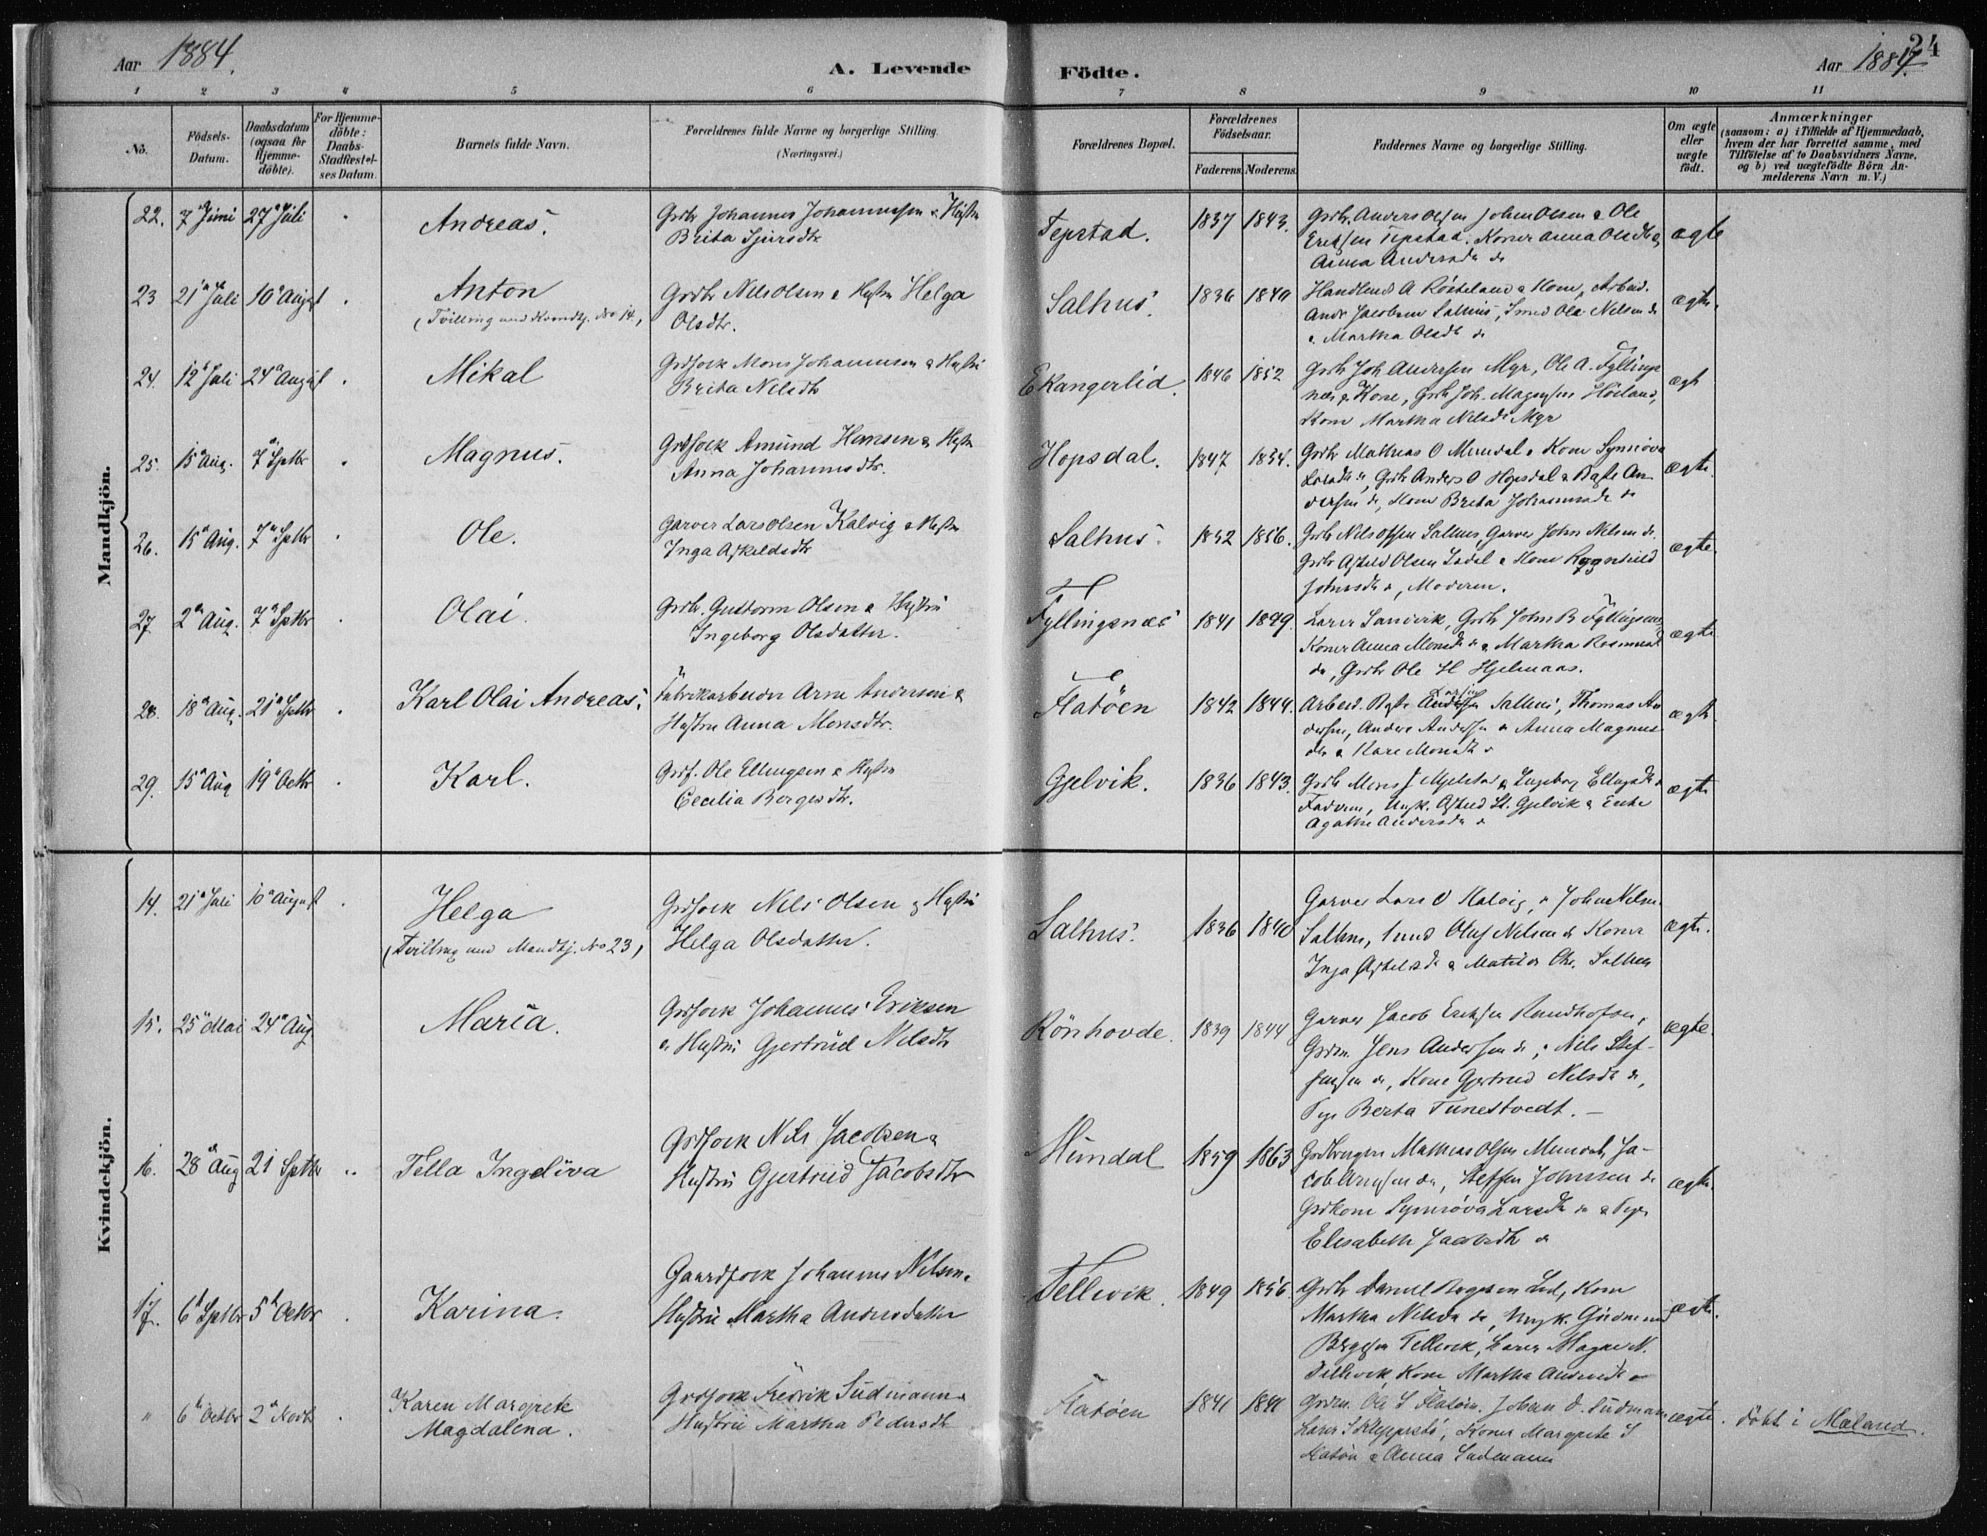 Aar 1884.
A. Levende Födte.
Aar 1884.
24
1 2 3 4 5 6 7 8 9 10 11
No.
Födsels-Datum.
Daabsdatum (ogsaa for Hjemme-döbte).
For Hjemme-döbte: Daabs-Stadfæstel-ses Datum.
Barnets fulde Navn.
Forældrenes fulde Navne og borgerlige Stilling. (Næringsvei.)
Forældrenes Bopæl.
Forældrenes Födselsaar.
Faderens. Moderens.
Faddernes Navne og borgerlige Stilling.
Om ægte eller uægte födt.
Anmærkninger
(saasom: a) i Tilfælde af Hjemmedaab,
hvem der har forrettet samme, med
Tilföielse af to Daabsvidners Navne,
og b) ved uægtefödte Börn An-
melderens Navn m. V.)
Mandkjön.
22. 7 Juni 27 Juli Andreas. Grdbr Johannes Johannessen & Hustru Brita Sjursdtr Tepstad. 1837 1843. Grdbr. Anders Olsen, John Olsen & Ole
Eriksen Tepstad. Koner Anna Olsdtr &
Anna Andersdtr do
ægte
23 21 Juli 10 August Anton
(Tvilling med Kvindkj. No 14)
Grdbr Nils Olsen & Hustru Helga
Olsdtr.
Salhus. 1836 1840
Andr Jacobsen Salhus, Smed Ola Nilsen do
& Martha Olsdtr do
ægte.
24. 12 Juli 24 August Mikal Grdfolk Mons Johannessen & Hustru
Brita Nilsdtr
Ekangerlid. 1846 1852 Grdbr Joh Andersen Myr, Ole A. Fyllings
næs & Kone, Grdbr Joh. Magnusen Höiland,
Kone Martha Nilsdtr Myr
ægt
25. 15 Aug. 7 Septbr Magnus. Grdfolk Amund Hansen & Hustru
Anna Johannesdtr.
Hopsdal. 1847 1854. Grdbr Mathias O Mundal & Kone Synnöva
Larsdtr do, Grdbr Anders O Hopsdal & Pige An-
dersen do, Kone Brita Johannesdtr do
ægte
26. 15 Aug. 7 Septbr Ole. Garver Lars Olsen Kalvig & Hustru
Inga Askeldsdtr
Salhus. 1852 1856. Grdbr Nils Olsen Salhus, Garver John Nilsen do.
Grdbr Askeld Olsen & Kone Ragnhild
Johnsdtr do, Moderen.
ægte.
27. 2 Aug. 7 Septbr Olai. Grdbr. Guttorm Olsen & Hustru
Ingeborg Olsdatter.
Fyllingsnæs 1841 1849. Lærer Sandvik, Grdbr John B Fyllingsnæs,
Koner Anna Monsdtr do & Martha Rasmusdtr
do, Grdbr Ole H Hjelmaas.
ægte
28. 18 Aug. 21 Septbr Karl Olai Andreas. Fabrikarbeider Arne Andersen &
Hustru Anna Monsdtr.
Flatöen 1842 1844. Salhus, Thomas An
dersen, Anders Andersen & Anna Magnus
dtr & Kari Monsdtr do
ægte
29. 15 Aug 19 Octbr Karl. Grdf. Ole Ellingsen & Hustru
Cecilia Borgesdtr.
Gjelvik. 1836 1843. Grdbr Mons J Mjelstad & Ingeborg Ellingsdtr do
Faderen, Ungk. Gjelvik & Enke
Agathe Andersdtr do
ægte
Kvindekjön.
14. 21 Juli 10 August Helga
(Tvilling med Mandkj. No 23)
Grdfolk Nils Olsen og Hustru
Helga Olsdatter.
Salhus. 1836 1840 Garver Lars O Kalvig, & John Nilsen
Salhus, Smed Oluf Nilsen do, Koner
Inga Askeldsdtr & Matilda Chr. Salhus
ægte.
15. 25 Mai 24 Aug. Maria. Grdfolk Johannes Eriksen
& Hustru Gjertrud Nilsdtr
Rönhovde. 1839 1844 Garver Jacob Eriksen
Grdm. Jens Andersen do, Nils Stef-
fensen do, Kone Gjertrud Nilsdtr do,
Pige Berta Tunestvedt. –
ægte.
16. 28 Aug 21 Septbr Tella Ingeliva Grdfolk Nils Jacobsen &
Hustru Gjertrud Jacobsdtr
Mundal 1859 1863 Grdbrugere Mathias Olsen Mundal, Ja-
cob do, Steffen Johnsen do
Grdkone Synnöva Larsdtr do & Pige
Elisabeth Jacobsdtr do
ægte.
17. 6 Septbr 5 Octbr Karina. Gaardfolk Johannes Nilsen &
Hustru Martha Andersdatter
Tellevik. 1849 1856. Grdbr Lid, Kone
Martha Nilsdtr do, Ungk. Gudmund
Tellevik, Lærer Magne N.
Tellevik, Kone Martha Andersdtr do
ægte.
" 6 Octbr 2 Novbr Karen Margrete
Magdalena.
Grdfolk Fredrik Sudmann &
Hustru Martha Pedersdtr
Flatöen 1841 1841 Grdm. Ole S Flatöen, Johan D. Sudmann
Lars S Kleppestö, Koner Margrete S
Flatöen & Anna Sudmann
ægte. Döbt i Mæland.